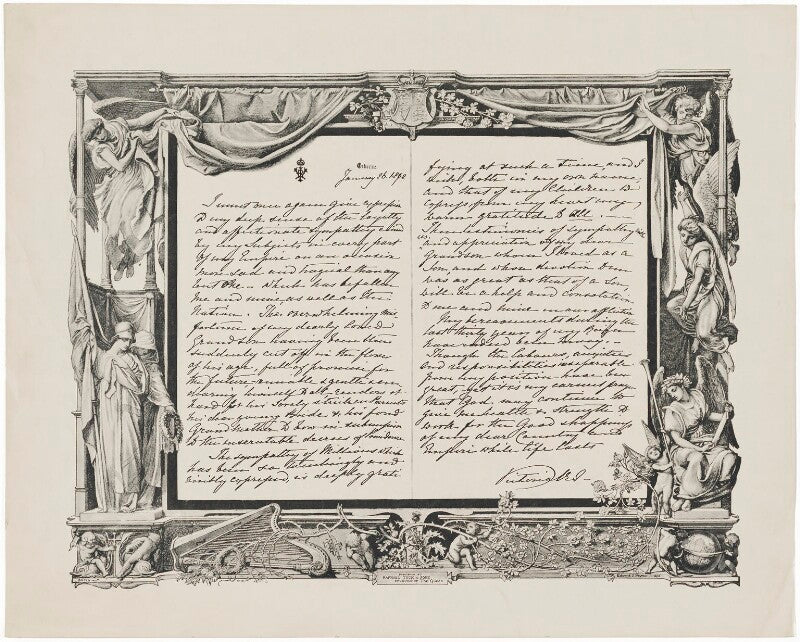 Osborne
January 26. 1892
I must once again give expression
to my deep sense of the loyalty
and affectionate sympathy evinced
by my Subjects in every part
of my Empire on an occasion
more sad and tragical than any
but one which has befallen
me and mine as well as the
Nation. The overwhelming mis-
fortune of my dearly loved
Grandson having been thus
suddenly cut off in the flower
of his age, full of promise for
the future, amiable & gentle, & en-
dearing himself to all, renders it
hard for his sorely stricken Parents,
his dear young Bride & his fond
Grand Mother to bow in submission
to the inscrutable decrees of Providence.
The sympathy of Millions which
has been so touchingly and
visibly expressed, is deeply grati-
fying at such a time, and I
wish, both in my own name,
and that of my Children to
express, from my heart, my
warm gratitude to All.
These testimonies of sympathy with
us, and appreciation of my dear
Grandson whom I loved as a
Son, and whose devotion to me
was as great as that of a Son,
will be a help and consolation
to me and mine in our affliction.
My bereavements during the
last thirty years of my Reign
have indeed been heavy.
Though the labours, anxieties
and responsibilities inseparable
from my position have been
great, yet it is my earnest prayer
that God may continue to
give me health & strength to
work for the Good & happiness
of my dear Country and
Empire while life lasts
Victoria R I
RAPHAEL TUCK & SONS